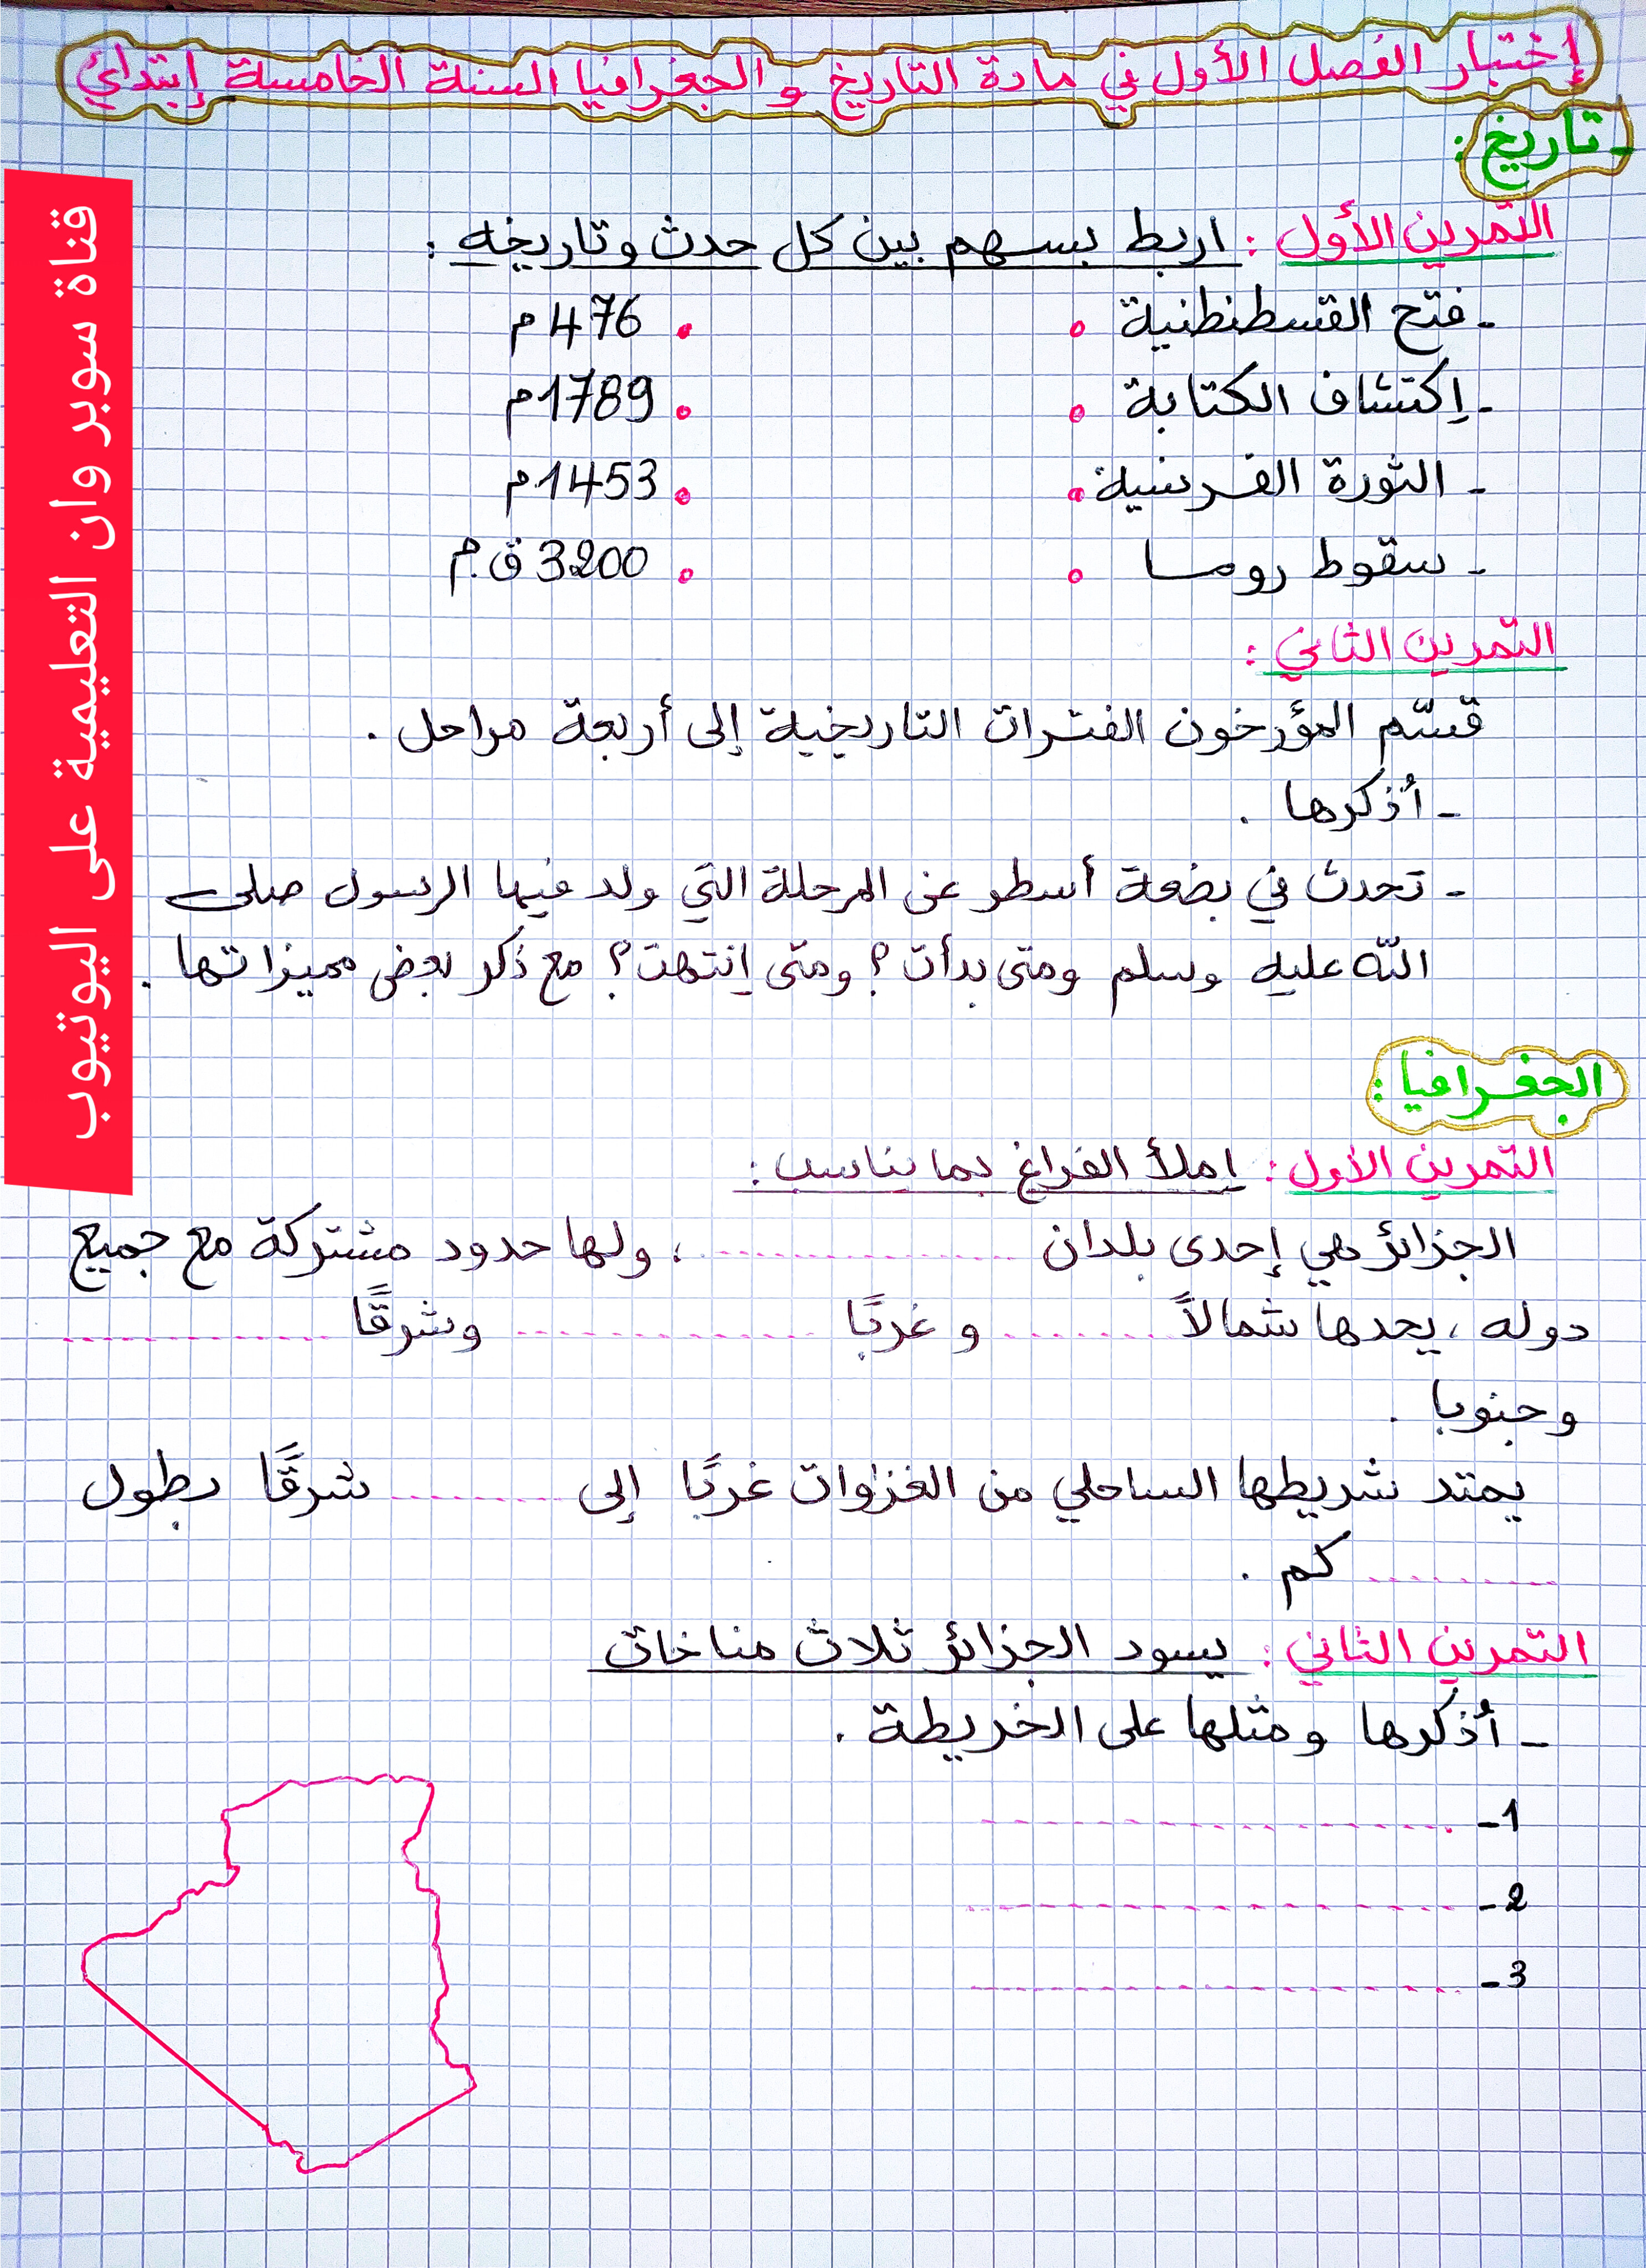 إختبار الفصل الأول في مادة التاريخ و الجغرافيا السنة الخامسة إبتدائي
- تاريخ :
التمرين الأول : اربط بسهم بين كل حدث وتاريخه :
- فتح القسطنطنية • • 476م
- إكتشاف الكتابة • • 1789م
- الثورة الفرنسية • • 1453م
- سقوط روما • • 3200 ق.م
التمرين الثاني :
قسّم المؤرخون الفترات التاريخية إلى أربعة مراحل .
- أذكرها .
- تحدث في بضعة أسطر عن المرحلة التي ولد فيها الرسول صلى
الله عليه وسلم ومتى بدأت ؟ ومتى إنتهت ؟ مع ذكر بعض مميزاتها .
الجغرافيا :
التمرين الأول : إملأ الفراغ بما يناسب :
الجزائر هي إحدى بلدان ............... ، ولها حدود مشتركة مع جميع
دوله ، يحدها شمالاً ......... و غربًا ............... وشرقًا ...............
وجنوبا .
يمتد شريطها الساحلي من الغزوات غربًا إلى ......... شرقًا بطول
......... كم .
التمرين الثاني : يسود الجزائر ثلاث مناخات
- أذكرها ومثلها على الخريطة .
1- ...............
2- ...............
3- ...............
قناة سوبر وان التعليمية على اليوتيوب